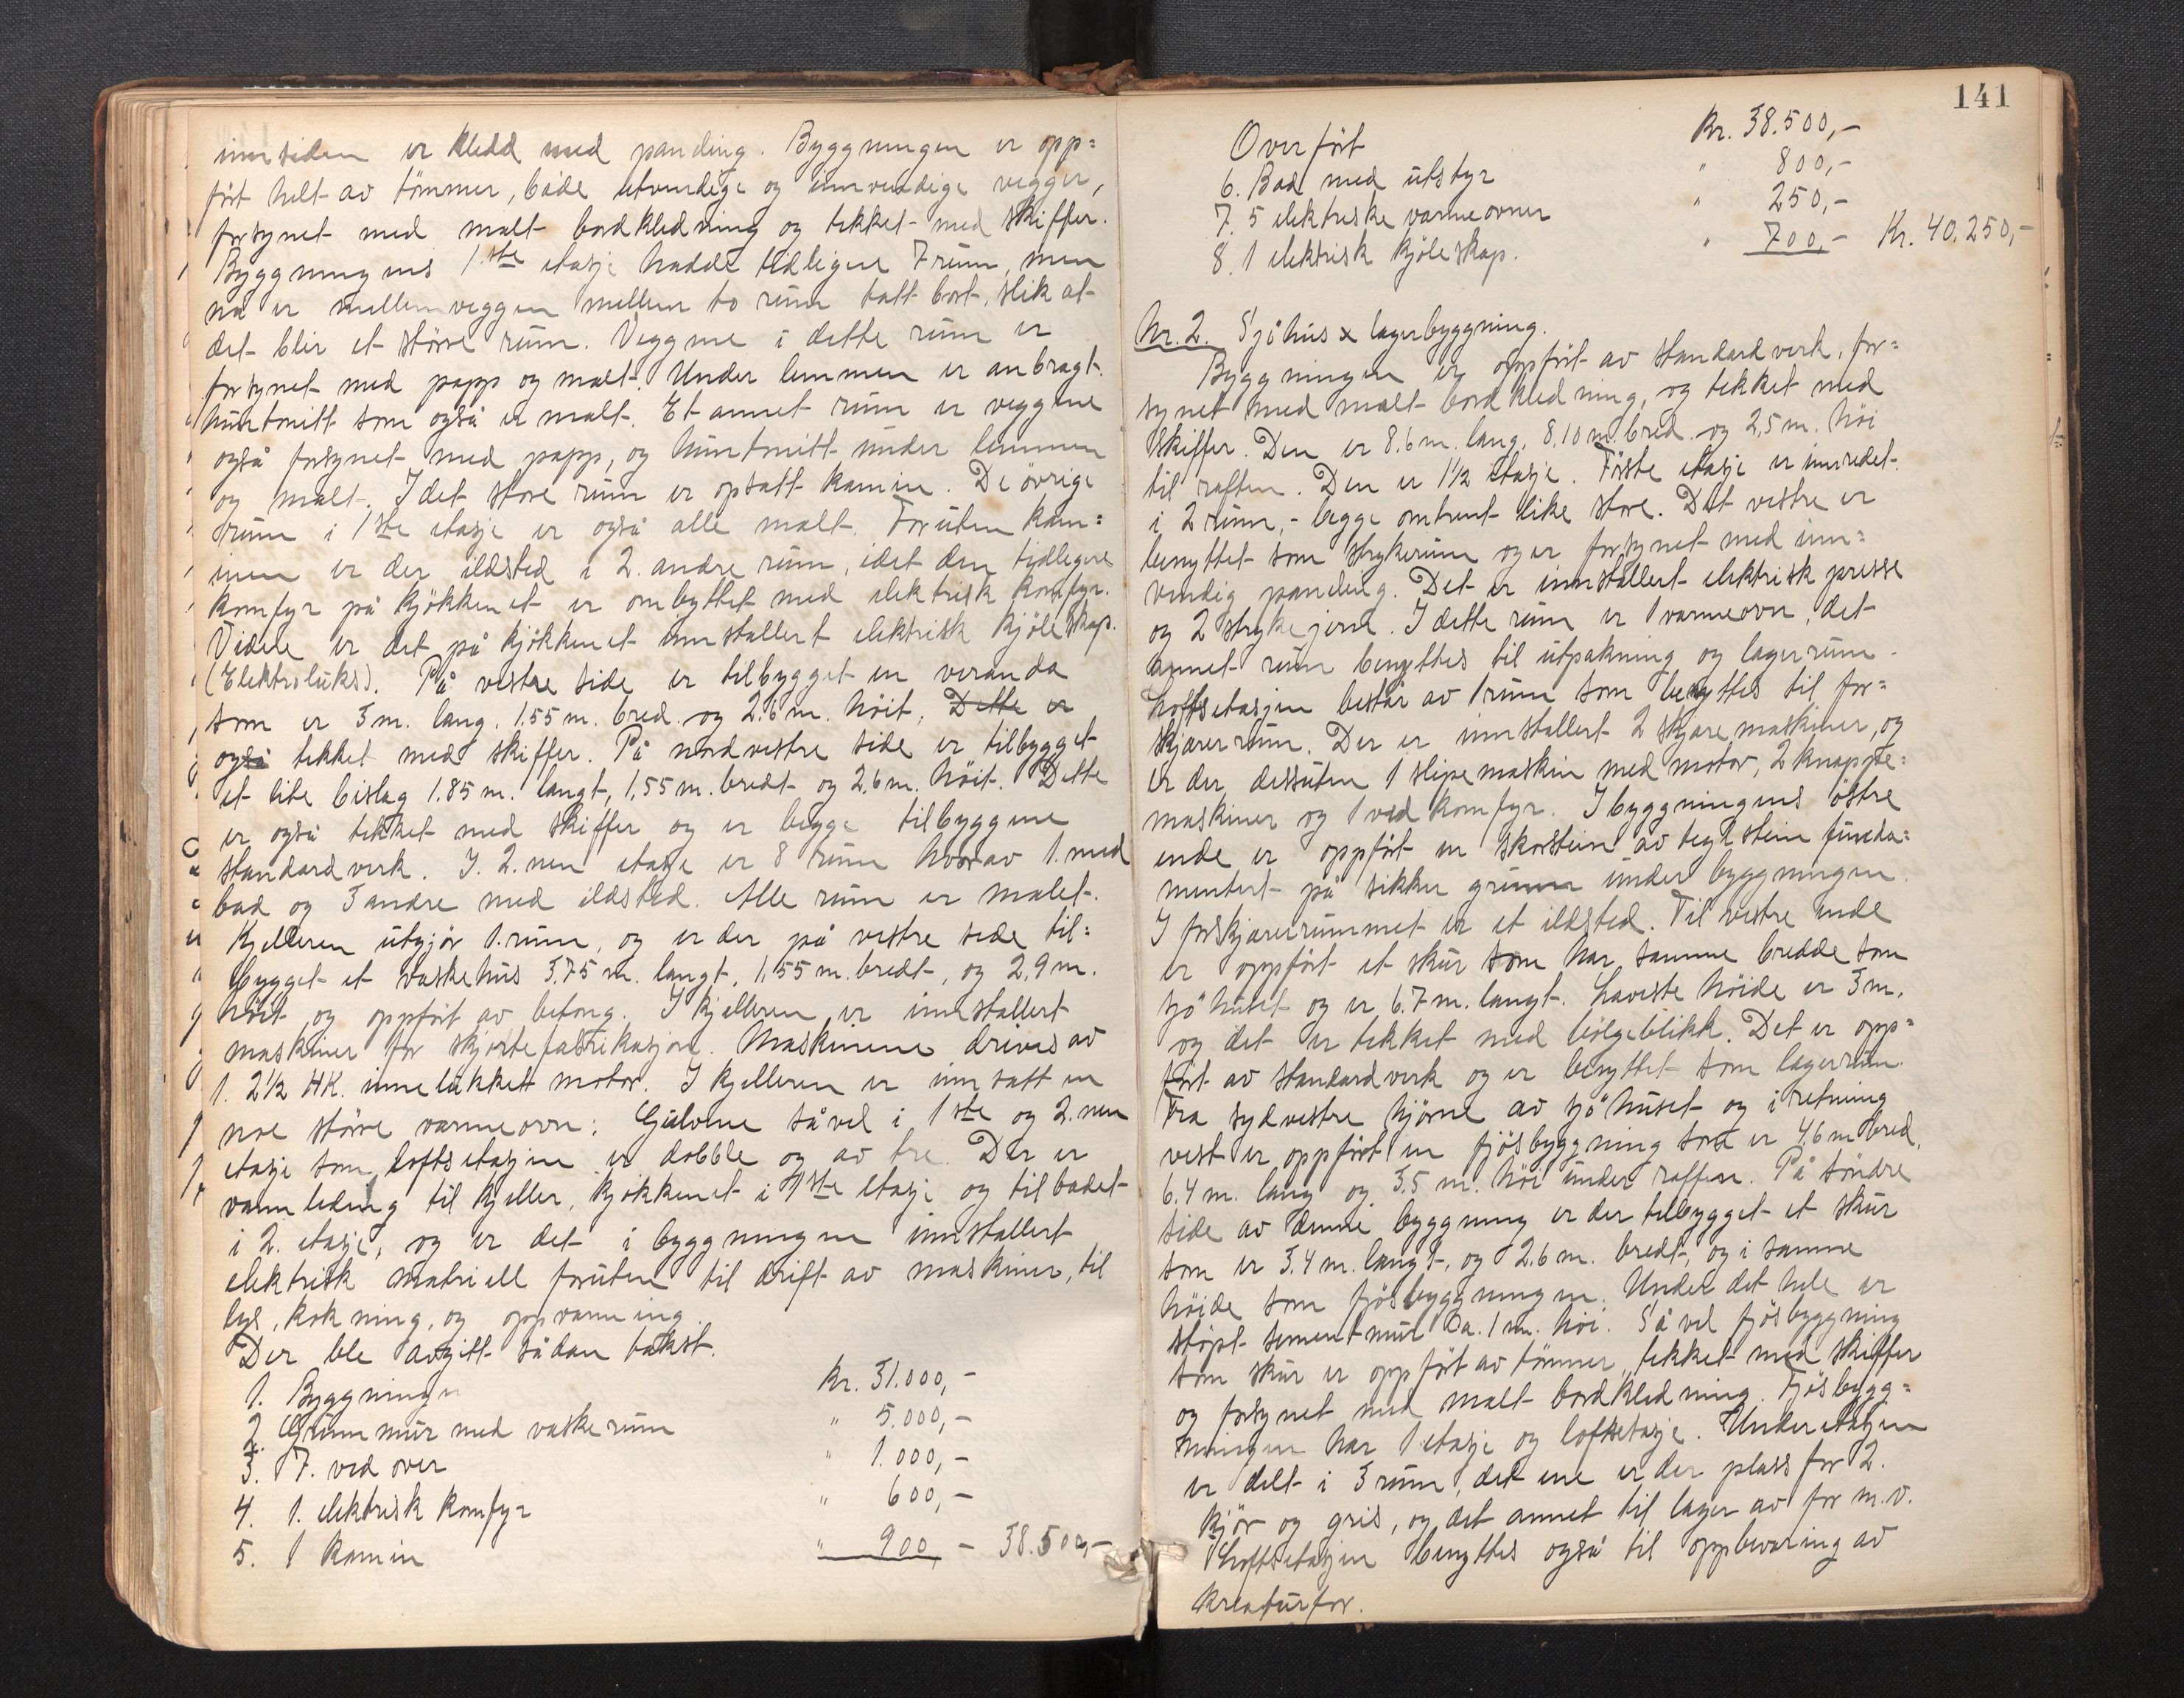 innsiden er kledd med panding. Byggningen er opp=
ført helt av tømmer, både utvendige og innvendige vegger,
forsynet med malt bordkledning og tekket med skiffer.
Byggningens 1ste etasje hadde tidligere 7 rum, men
nå er mellemveggen mellem to rum tatt bort, slik at
det blir et større rum. Veggene i dette rum er
forsynet med papp og malt. Under lemmen er anbragt
huntonitt som også er malt. Et annet rum er veggene
også forsynet med papp, og huntonitt under lemmen
og malt. I det store rum er opsatt kamin. De øvrige
rum i 1ste etasje er også alle malt. Foruten kam=
inen er der ildsted i 2. andre rum, idet den tidligere
komfyr på kjøkkenet er ombyttet med elektrisk komfyr.
Videre er det på kjøkkenet innstallert elektrisk kjøleskap.
(Elektroluks). På vestre side er tilbygget en veranda
som er 3 m. lang. 1.55 m. bred. og 2.6 m. høit, Dette er
også tekket med skiffer. På nordvestre side er tilbygget
et lite bislag 1.85 m. langt, 1,55 m. bredt og 2,6 m. høit. Dette
er også tekket med skiffer og er begge tilbyggene
standardverk. I. 2.nen etasje er 8 rum hvorav 1. med
bad og 3 andre med ildsted. Alle rum er malet.
Kjelleren utgjør 1. rum, og er der på vestre side til=
bygget et vaskehus 3.75 m. langt, 1,55 m. bredt, og 2,9 m.
høit og oppført av betong. I kjelleren er innstallert
maskiner for skjortefabrikasjon. Maskinene drives av
1. 2½ HK. innelukkett motor. I kjelleren er innsatt en
noe større varmeovn. Gulvene såvel i 1ste og 2.nen
etasje som loftsetasjen er dobble og av tre. Der er
vannledning til kjeller, kjøkkenet i 1ste etasje og til badet
i 2. etasje, og er det i byggningen innstallert
elektrisk matriell foruten til drift av maskiner, til
lys, kokning, og oppvarming.
Der ble avgitt sådan takst.
1. Byggningen Kr. 31.000,-
2. Grunnmur med vaskerum " 5.000,-
3. 7. vedover " 1.000,-
4. 1. elektrisk komfyr " 600,-
5. 1 kamin " 900,- 38.500,-
141
Overført Kr. 38.500,-
6. Bad med utstyr " 800,-
7. 5 elektriske varmeovner " 250,-
8. 1 elektrisk kjøleskap. " 700,- Kr. 40.250,-
Nr. 2. Sjøhus x lagerbyggning.
Byggningen er oppført av standardverk, for=
synet med malt bordkledning, og tekket med
skiffer. Den er 8.6 m. lang, 8,10 m. bred. og 2,5 m. høi
til raften. Den er 1½ etasje. Første etasje er innredet
i 2 rum, - begge omtrent like store. Det vestre er
benyttet som strykerum og er forsynet med inn=
vendig paneling. Det er innstallert elektrisk presse
og 2 strykejern. I dette rum er 1 varmeovn, det
annet rum benyttes til utpakning og lagerrum.
Loftsetasjen består av 1 rum som benyttes til for=
skjærerrum. Der er innstallert 2 skjæremaskiner, og
er der dessuten 1 slipemaskin med motor, 2 knappe=
maskiner og 1 vedkomfyr. I byggningens østre
ende er oppført en skorstein av teglstein funda=
mentert på sikker grunn under byggningen.
I forskjærerrummet er et ildsted. Til vestre ende
er oppført et skur som har samme bredde som
sjøhuset og er 6.7 m. langt. Laveste høide er 3 m.
og det er tekket med bølgeblikk. Det er opp=
ført av standardverk og er benyttet som lagerrum.
Fra sydvestre hjørne av sjøhuset og i retning
vest er oppført en fjøsbyggning som er 4,6 m bred.
6.4 m. lang og 3.5 m. høi under raften. På søndre
side av denne byggning er der tilbygget et skur
som er 3.4 m. langt, og 2.6 m. bredt, og i samme
høide som fjøsbyggningen. Under det hele er
støpt sementmur ca. 1 m. høi. Såvel fjøsbyggning
som skur er oppført av tømmer, tekket med skiffer
og forsynet med malt bordkledning. Fjøsbygg=
ningen har 1 etasje og loftsetasje. Underetasjen
er delt i 3 rum, det ene er der plass for 2.
kjør og gris, og det annet til lager av for m.v.
Loftsetasjen benyttes også til oppbevaring av
kreaturfor.